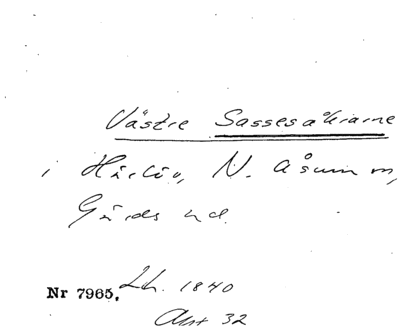 Västre Sassesåkrarne
i Härlöv, N. Åsum sn,
Gärds hd.
Nr 7965. Lh. 1840
Akt 32